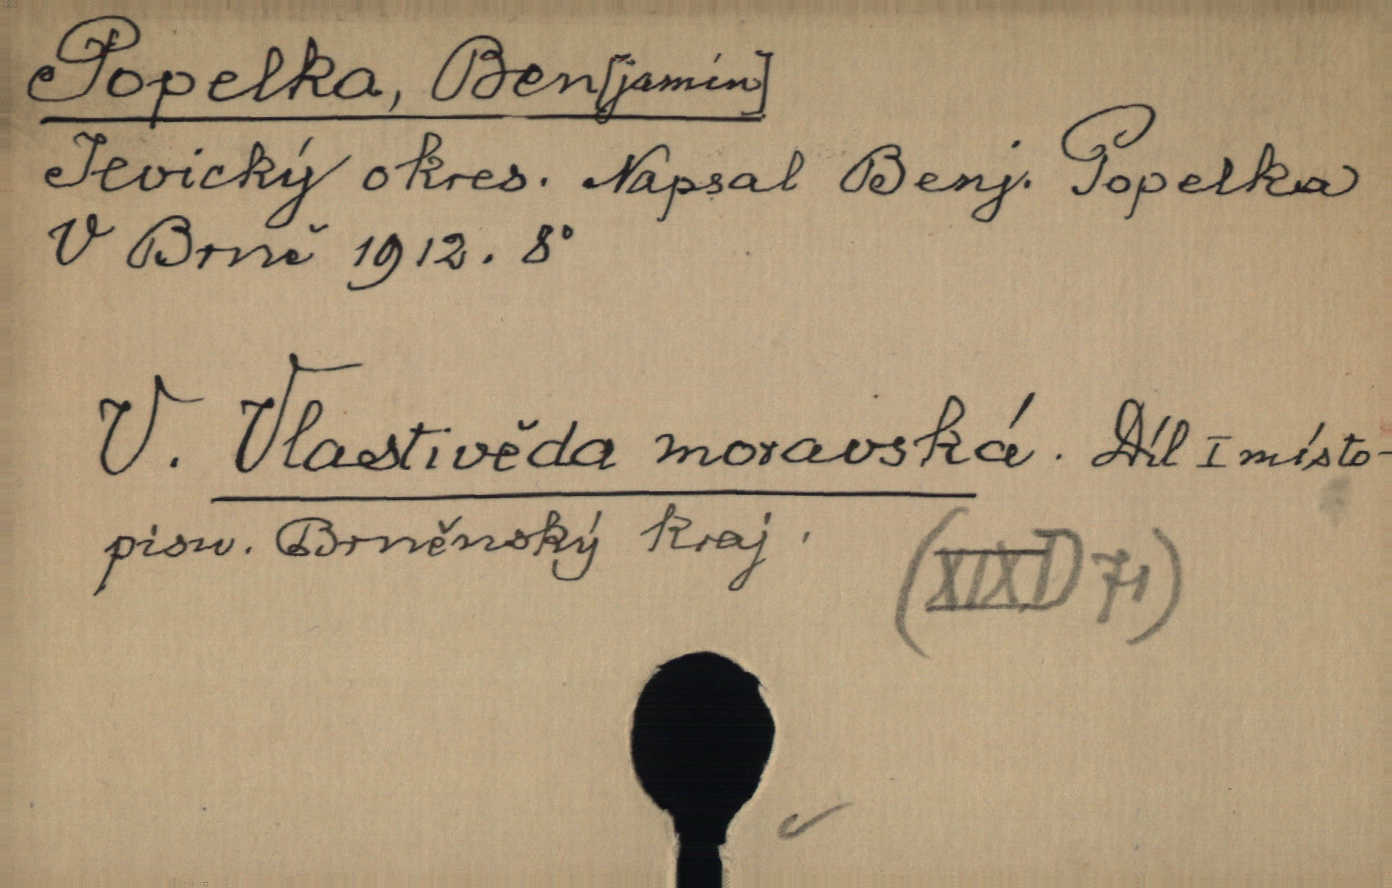 Popelka, Ben[jamin]
Jevický okres. Napsal Benj. Popelka
V Brně 1912. 8°
V. Vlastivěda moravská. Díl I místo-
pisn. Brněnský kraj.
(XIX D 71)